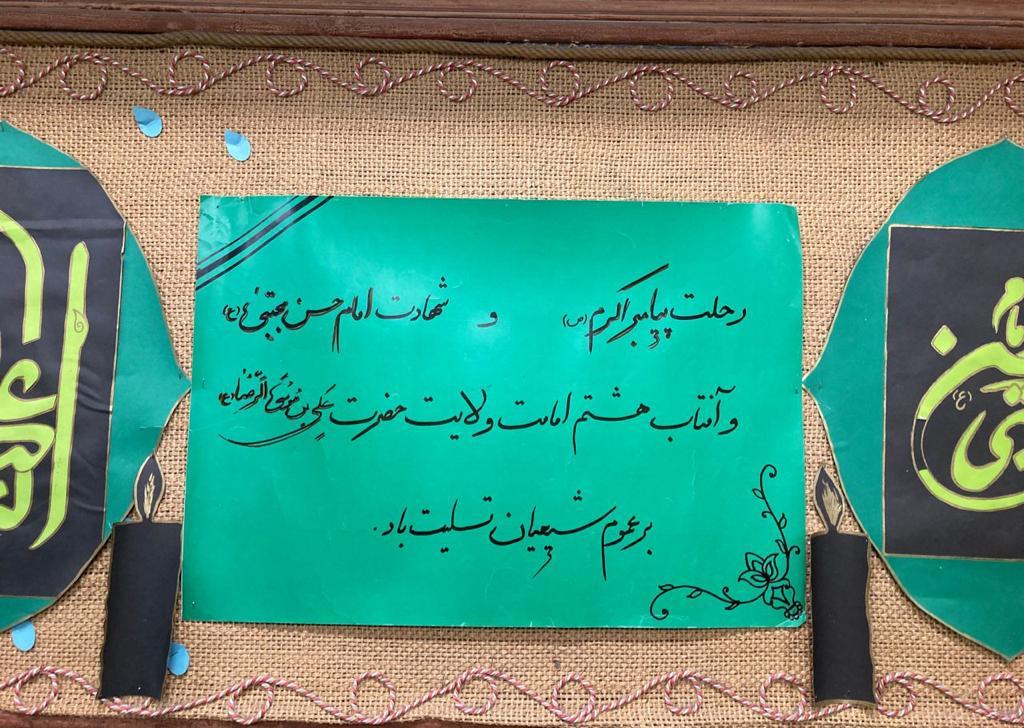 رحلت پیامبر اکرم (ص) و شهادت امام حسن مجتبی (ع)
و آفتاب هشتم امامت و ولایت حضرت علی بن موسی الرضا (ع)
بر عموم شیعیان تسلیت باد.